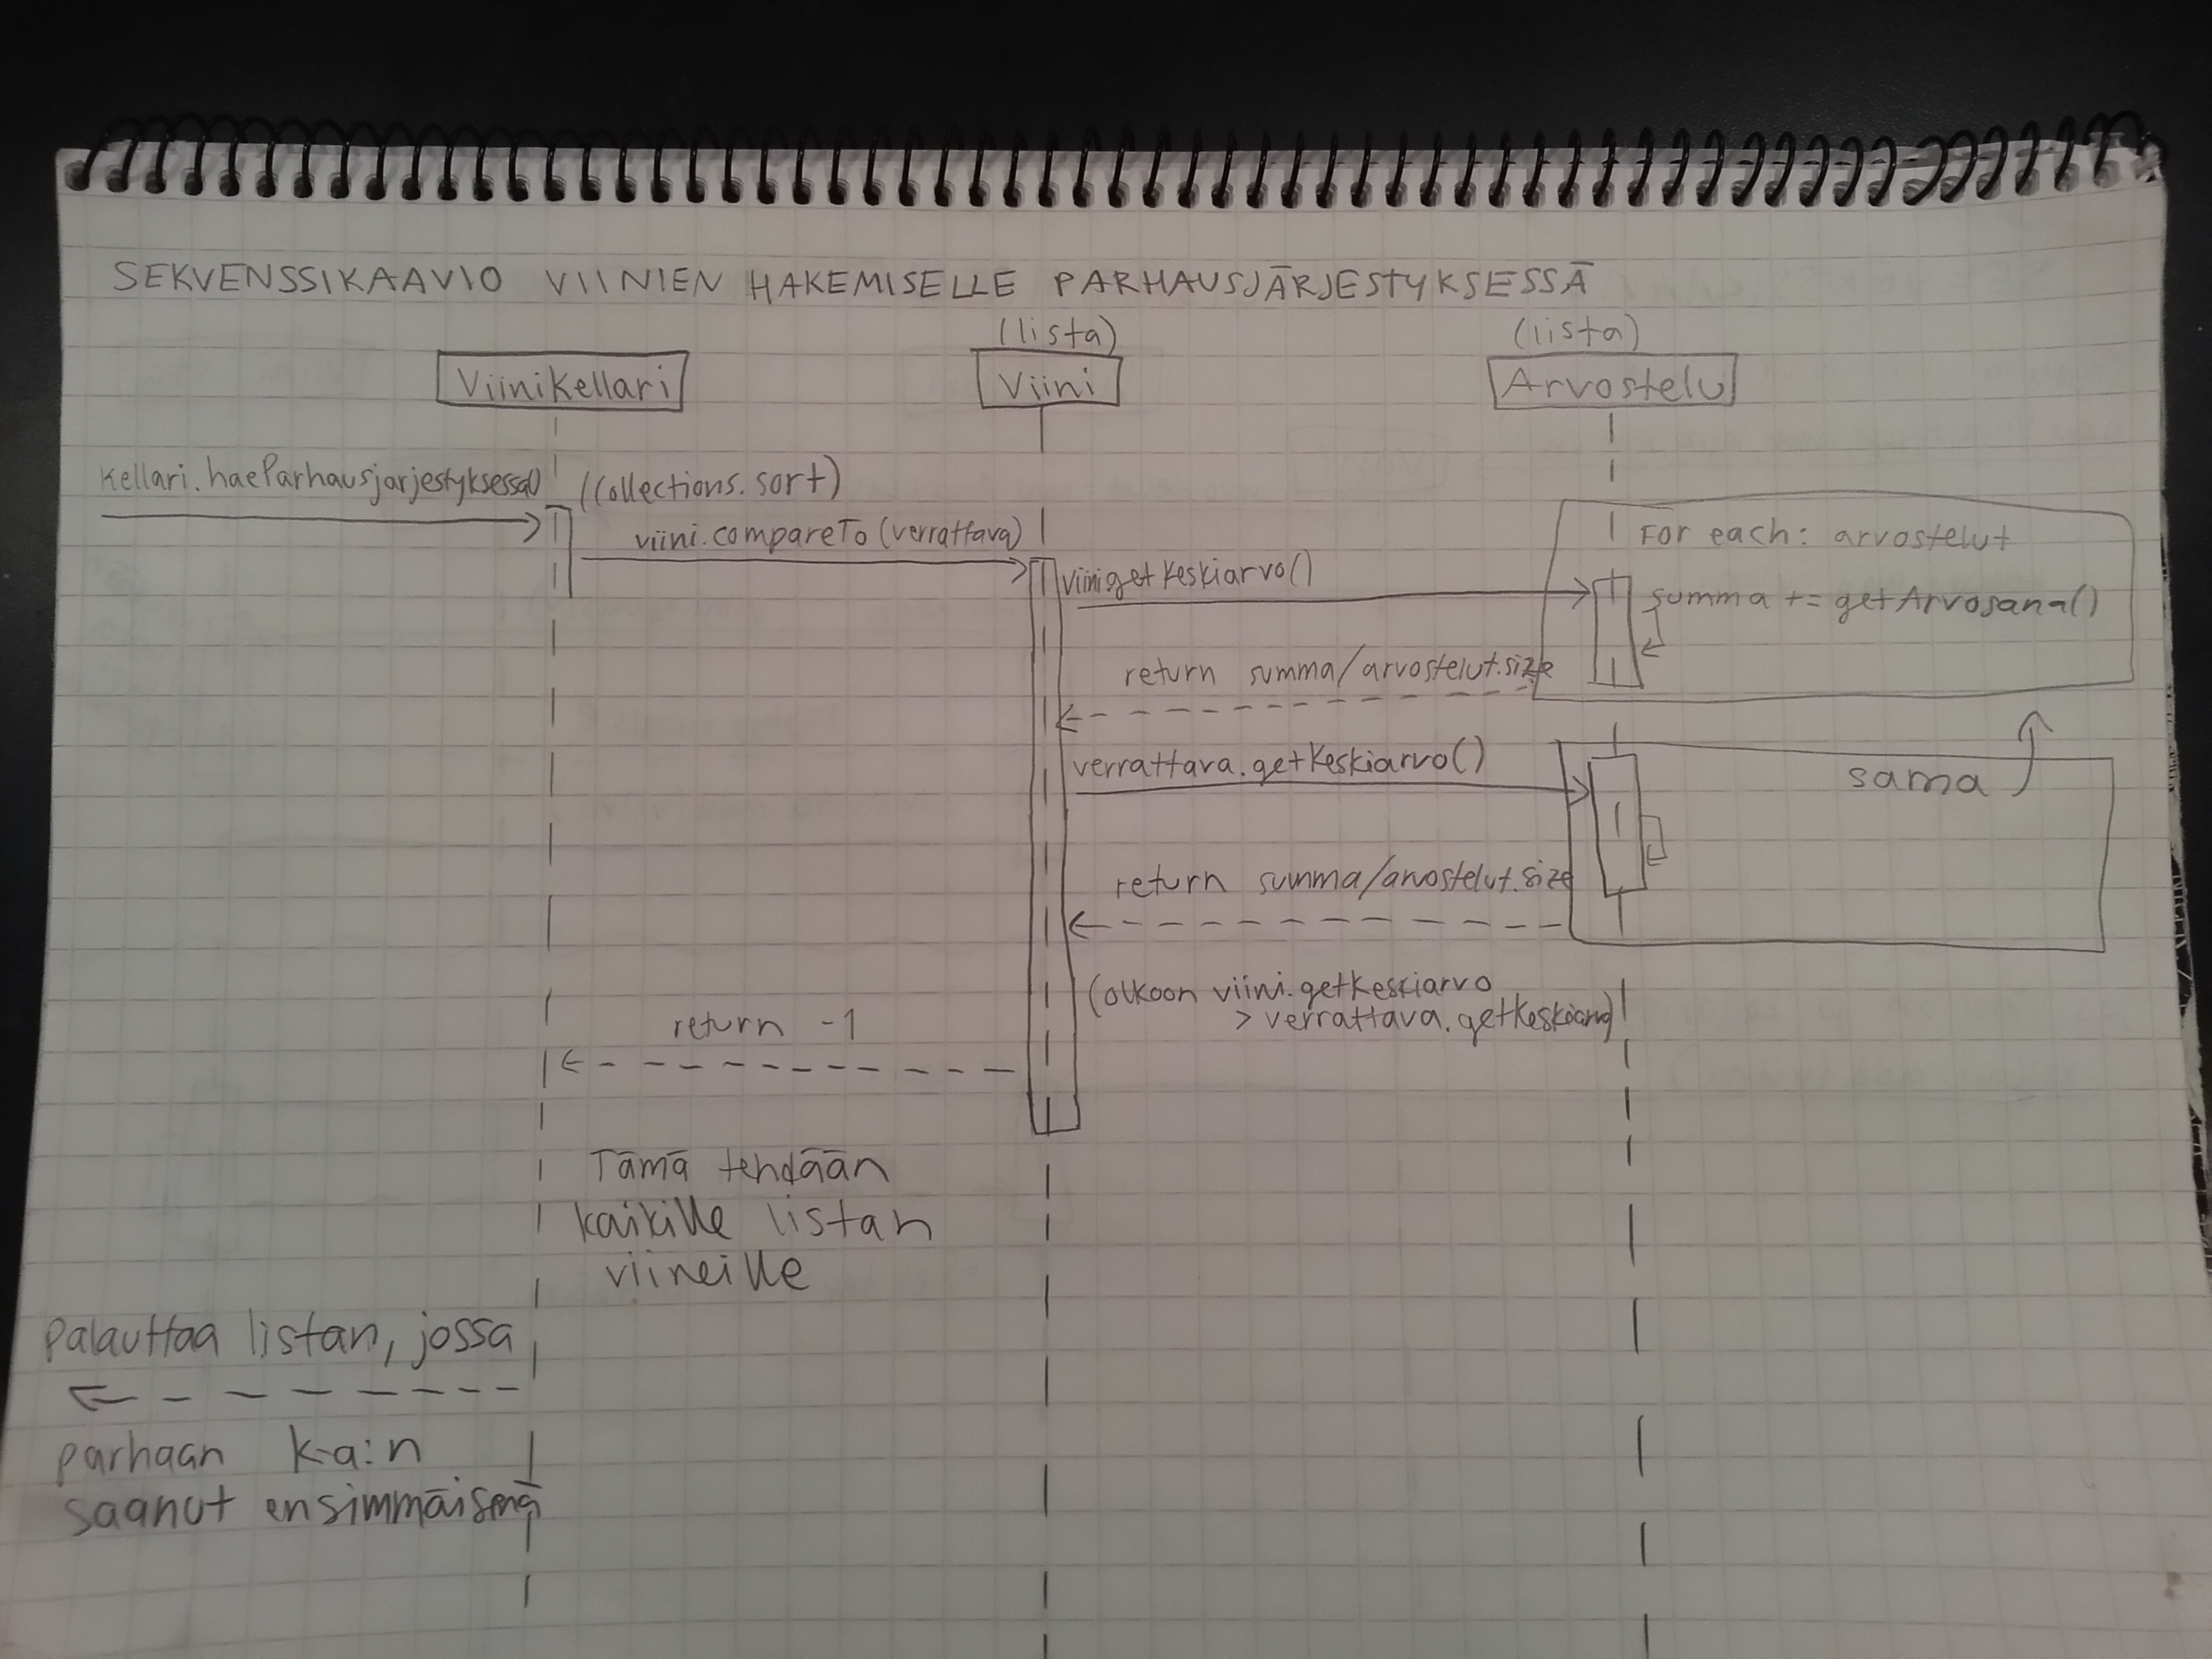 SEKVENSSIKAAVIO VIINIEN HAKEMISELLE PARHAUSJÄRJESTYKSESSÄ
(lista)
(lista)
Viinikellari
Viini
Arvostelu
kellari.haeParhausjarjestyksessa()
(Collections.sort)
viini.compareTo (verrattava)
For each: arvostelut
viini.getKeskiarvo()
summa += getArvosana()
return summa/arvostelut.size
verrattava.getKeskiarvo()
sama
return summa/arvostelut.size
(olkoon viini.getKeskiarvo
> verrattava.getKeskiarvo)
return -1
Tämä tehdään
kaikille listan
viineille
Palauttaa listan, jossa
parhaan k-a:n
saanut ensimmäisenä